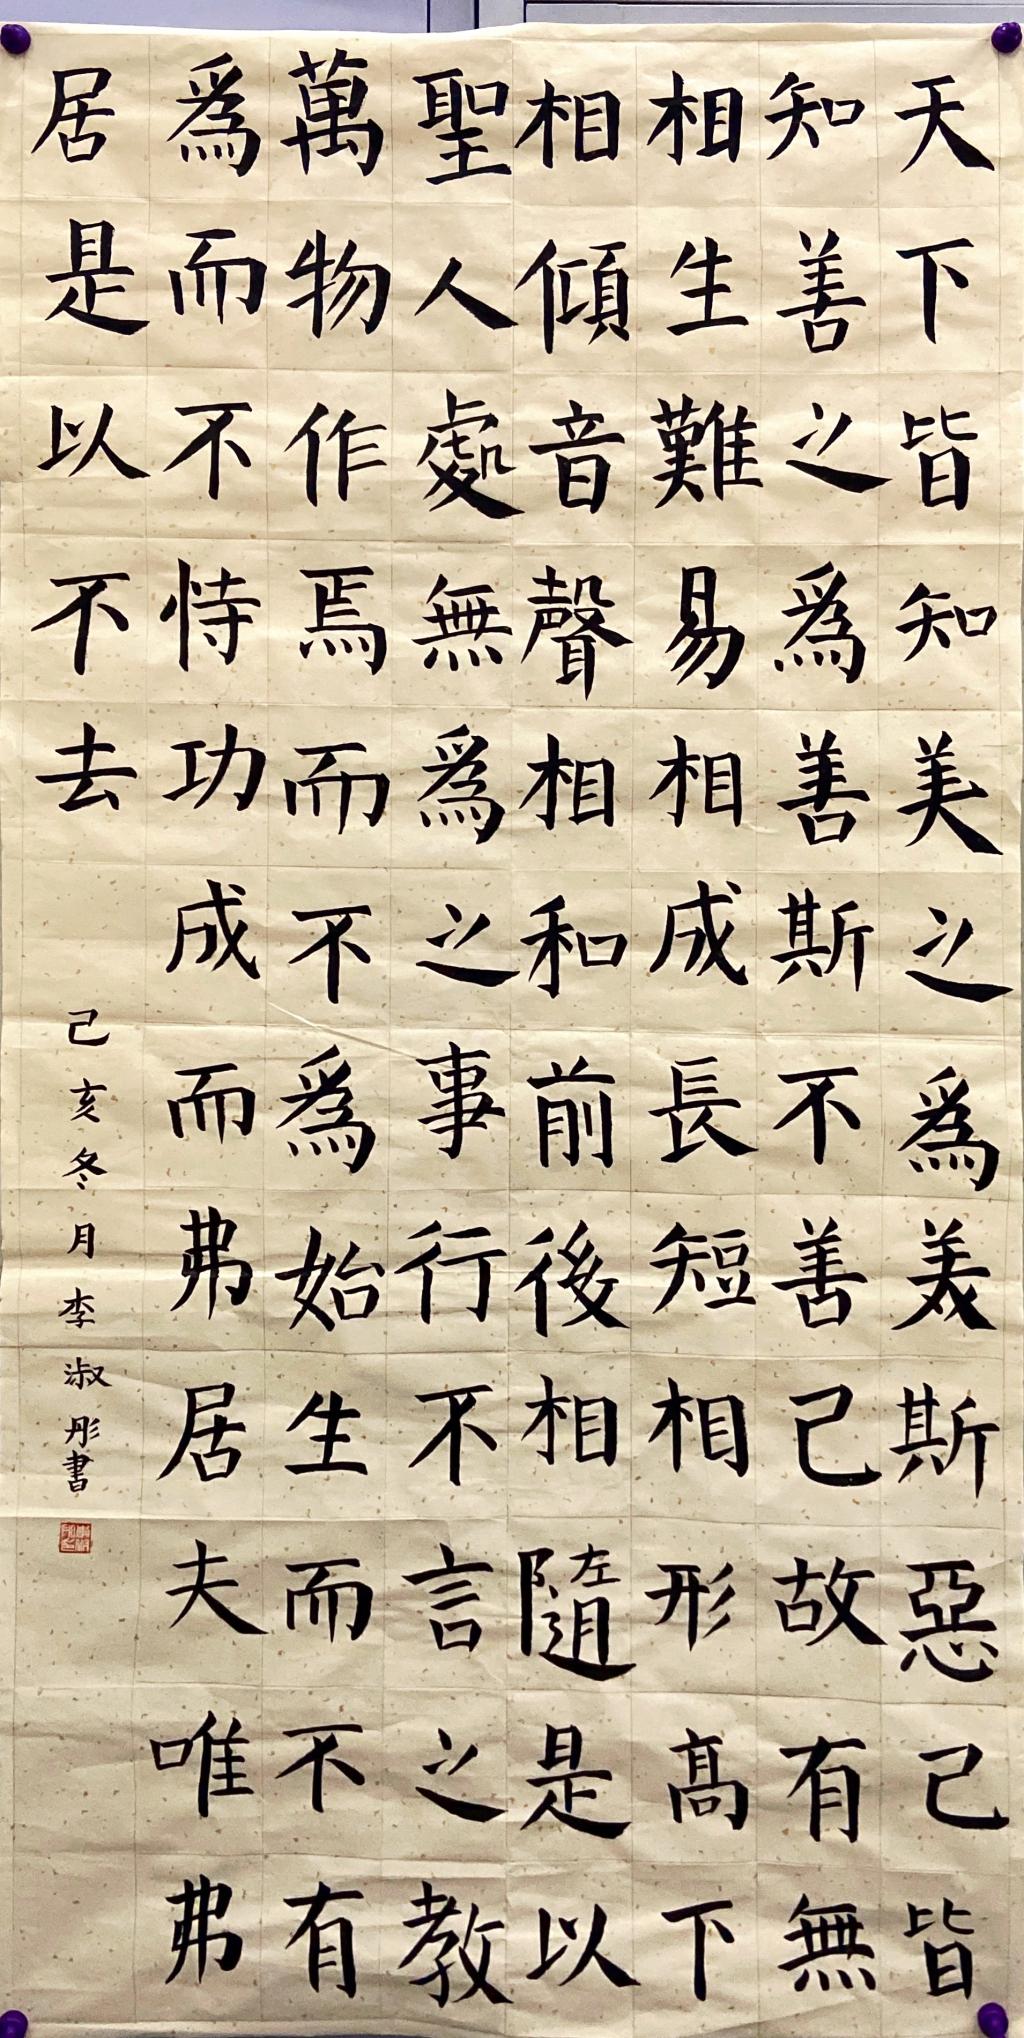 天下皆知美之爲美斯惡己皆
知善之爲善斯不善己故有無
相生難易相成長短相形高下
相傾音聲相和前後相隨是以
聖人處無爲之事行不言之教
萬物作焉而不爲始生而不有
爲而不恃功成而弗居夫唯弗
居是以不去
己亥冬月李淑彤書